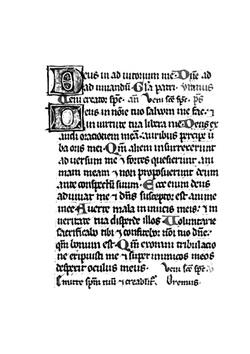 Deus in ad iutorium me Dne ad
ad iuuandū Gla patri Uenius
Ueni creator spē añ Veni sce spe ps
Deus in noīe tuo saluum me fac ⁊
in uirtute tua libra me Deus ex
audi orationem meā auribus percipe ū
ba oris mei Qm alieni insurrexerunt
aduersum me ⁊ fortes quesierunt ani
mam meam ⁊ non proposuerunt deum
ante conspectū suum Ecce enim deus
adiuuat me ⁊ dns susceptor est anime
mee Auerte mala inimicis meis ⁊ in
ueritate tua disperde illos Uoluntarie
sacrificabo tibi ⁊ confitebor nōi tuo dne
qm bonum est Qm ex omni tribulacio
ne eripuisti me ⁊ super inimicos meos
despexit oculus meus Veni sce spe
Emitte spm tuū ⁊ creabūt Oremus